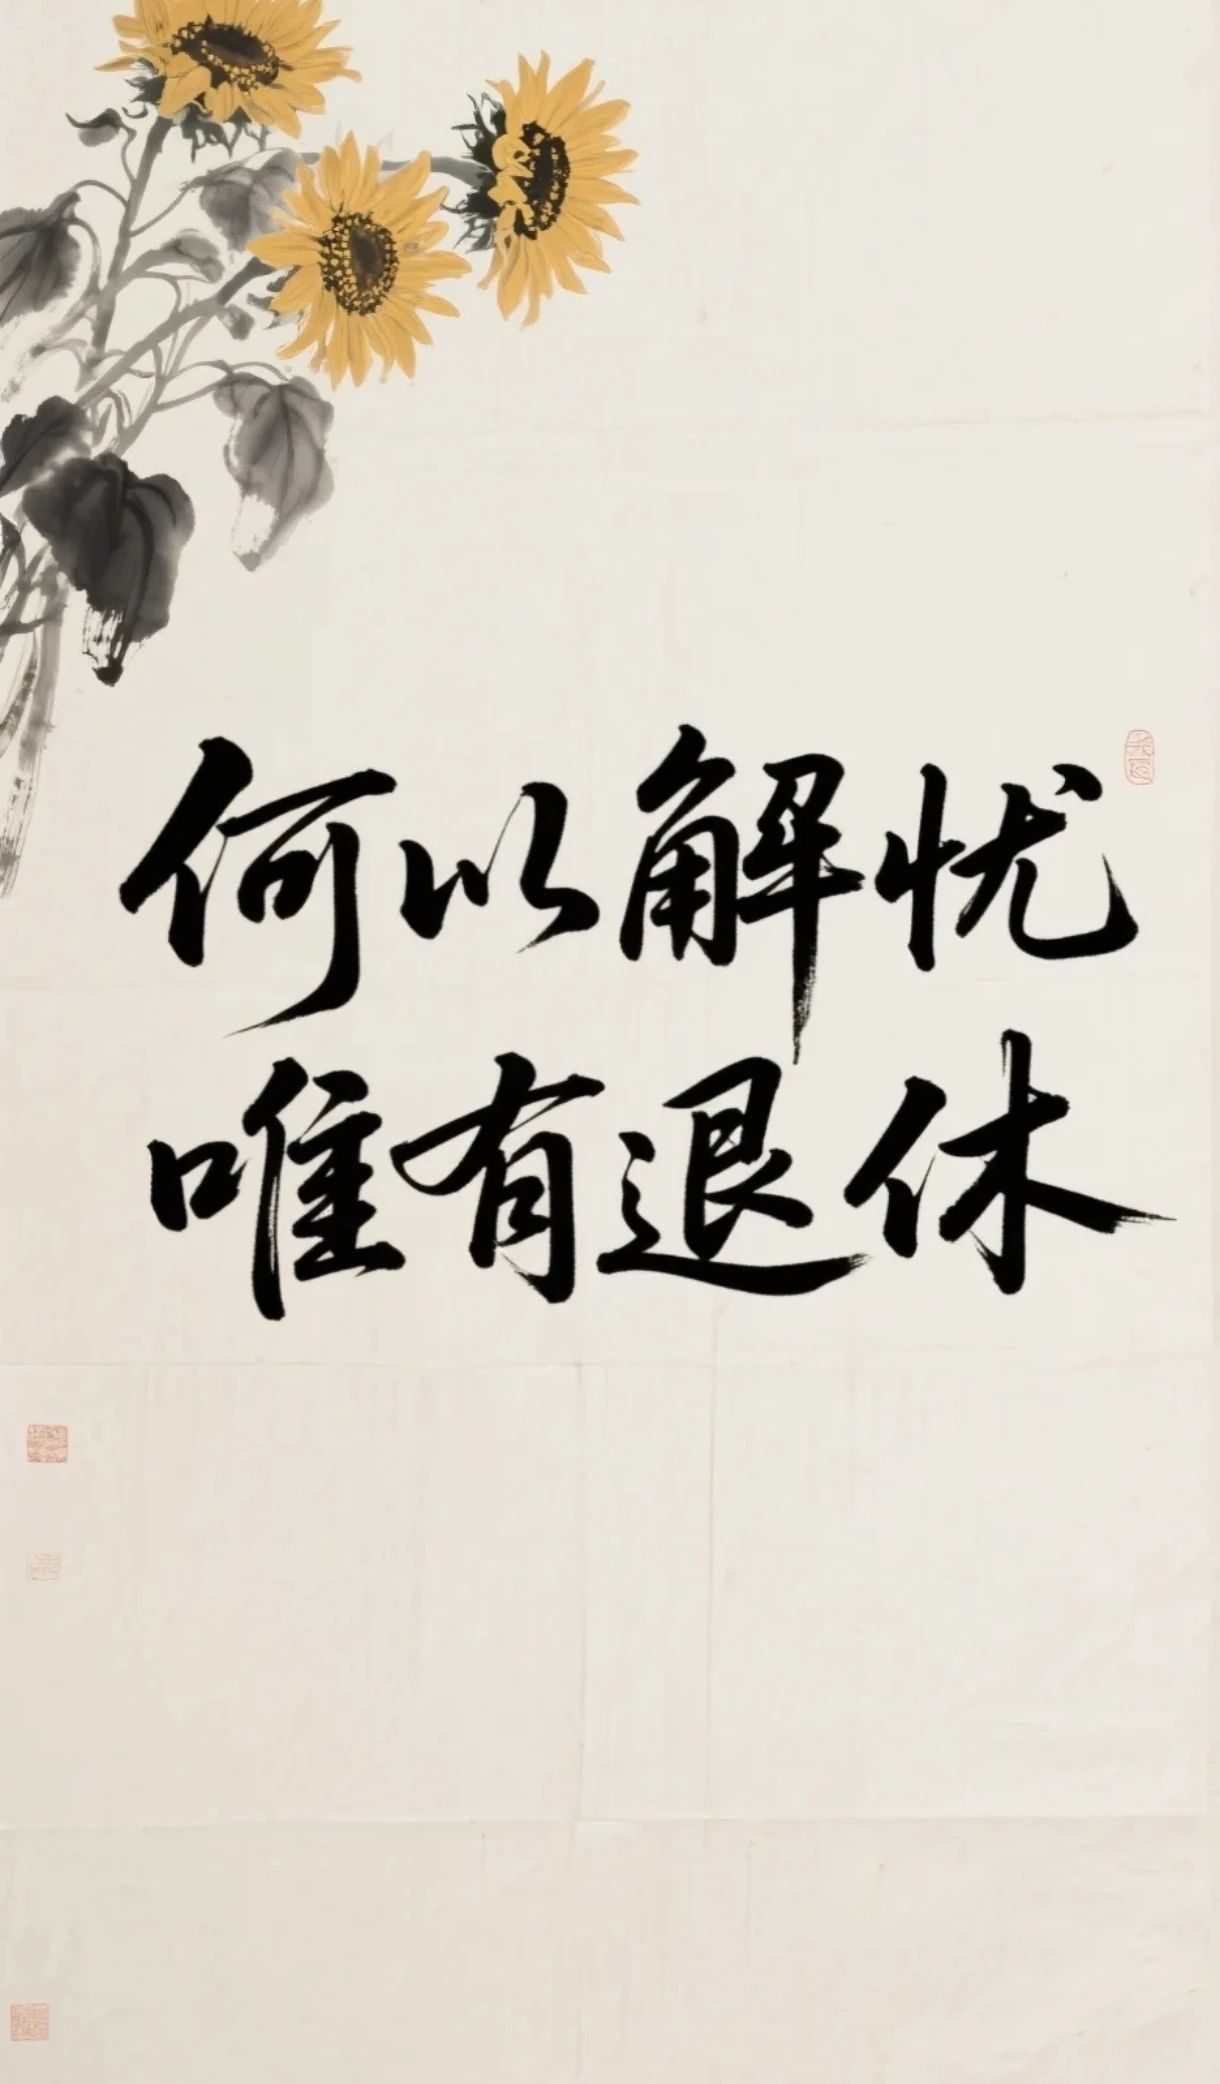 何以解忧
唯有退休